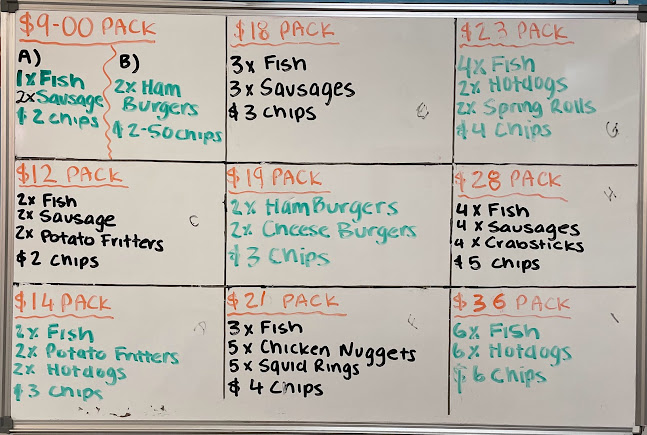 $9-00 PACK
A)
1x Fish
2x Sausage
$2 chips
B)
2x Ham
Burgers
$2-50 chips
$18 PACK
3x Fish
3x Sausages
$3 chips
$23 PACK
4x Fish
2x Hotdogs
2x Spring Rolls
$4 Chips
G
$12 PACK
2x Fish
2x Sausage
2x Potato Fritters
$2 chips
C
$19 PACK
2x HamBurgers
2x Cheese Burgers
$3 Chips
$28 PACK
4x Fish
4x Sausages
4x Crabsticks
$5 chips
$14 PACK
2x Fish
2x Potato Fritters
2x Hotdogs
$3 chips
$21 PACK
3x Fish
5x Chicken Nuggets
5x Squid Rings
$4 Chips
$36 PACK
6x Fish
6x Hotdogs
$6 Chips